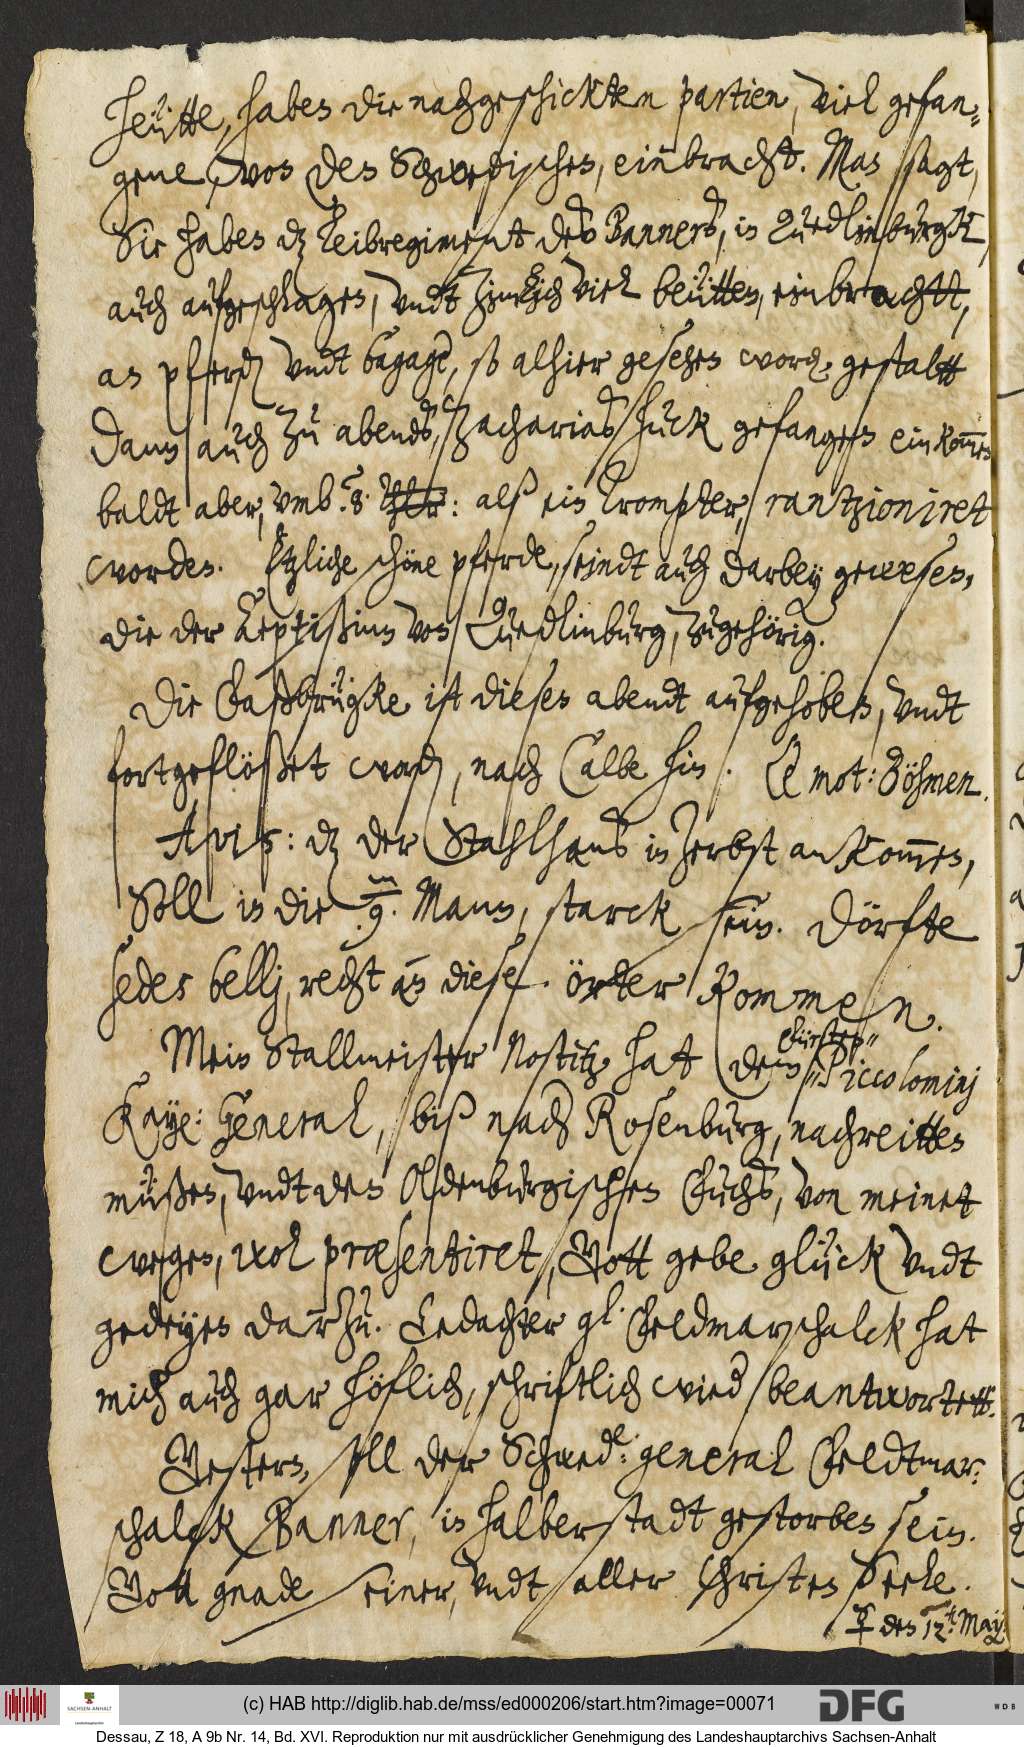 Heütte, haben die nachgeschickten partien, viel gefan-
gene, von den Schwedischen, einbracht. Man sagt,
Sie haben dz Leibregiment des Banners, in Quedlinburgk,
auch aufgeschlagen, vndt zimlich viel beütten, einbrachtt,
an pferden vndt bagage, so alhier gesehen worden: gestaltt
dann auch zu abends, Zacharias Huck gefangen einkommen
baldt aber, vmb 8. Thlr: alß ein Trompter, rantzioniret
worden. Etzliche schöne pferde, seindt auch darbey gewesen,
die der Aeptißinn von Quedlinburg, zugehörig.
Die Faßbrügke ist diesen abendt aufgehoben, vndt
fortgeflößet worden, nach Calbe hin. Le mot: Böhmen.
Avis: dz der Stahlhans in Zerbst ankommen,
Soll in die 9. m Mann, starck sein. Dörfte
sedes bellj, recht an diese örter kommen.
Mein Stallmeister Nostitz hat dem Fürsten Piccolominj
Kaye: General, biß nach Rosenburg, nachreitten
müßen, vndt den Oldenburgischen Fuchs, von meinet
wegen, wol præsentiret, Gott gebe glück vndt
gedeyen darzu. Gedachter gl. Feldmarschalck hat
mich auch gar höflich, schriftlich wieder beantwortett.
Gestern, soll der Schwed: general Feldtmar-
schalck Banner, in Halberstadt gestorben sein.
Gott gnade seiner, vndt aller Christen Seele.
☿ den 12.t May:
(c) HAB http://diglib.hab.de/mss/ed000206/start.htm?image=00071
SACHSEN-ANHALT
DFG
WDB
Dessau, Z 18, A 9b Nr. 14, Bd. XVI. Reproduktion nur mit ausdrücklicher Genehmigung des Landeshauptarchivs Sachsen-Anhalt